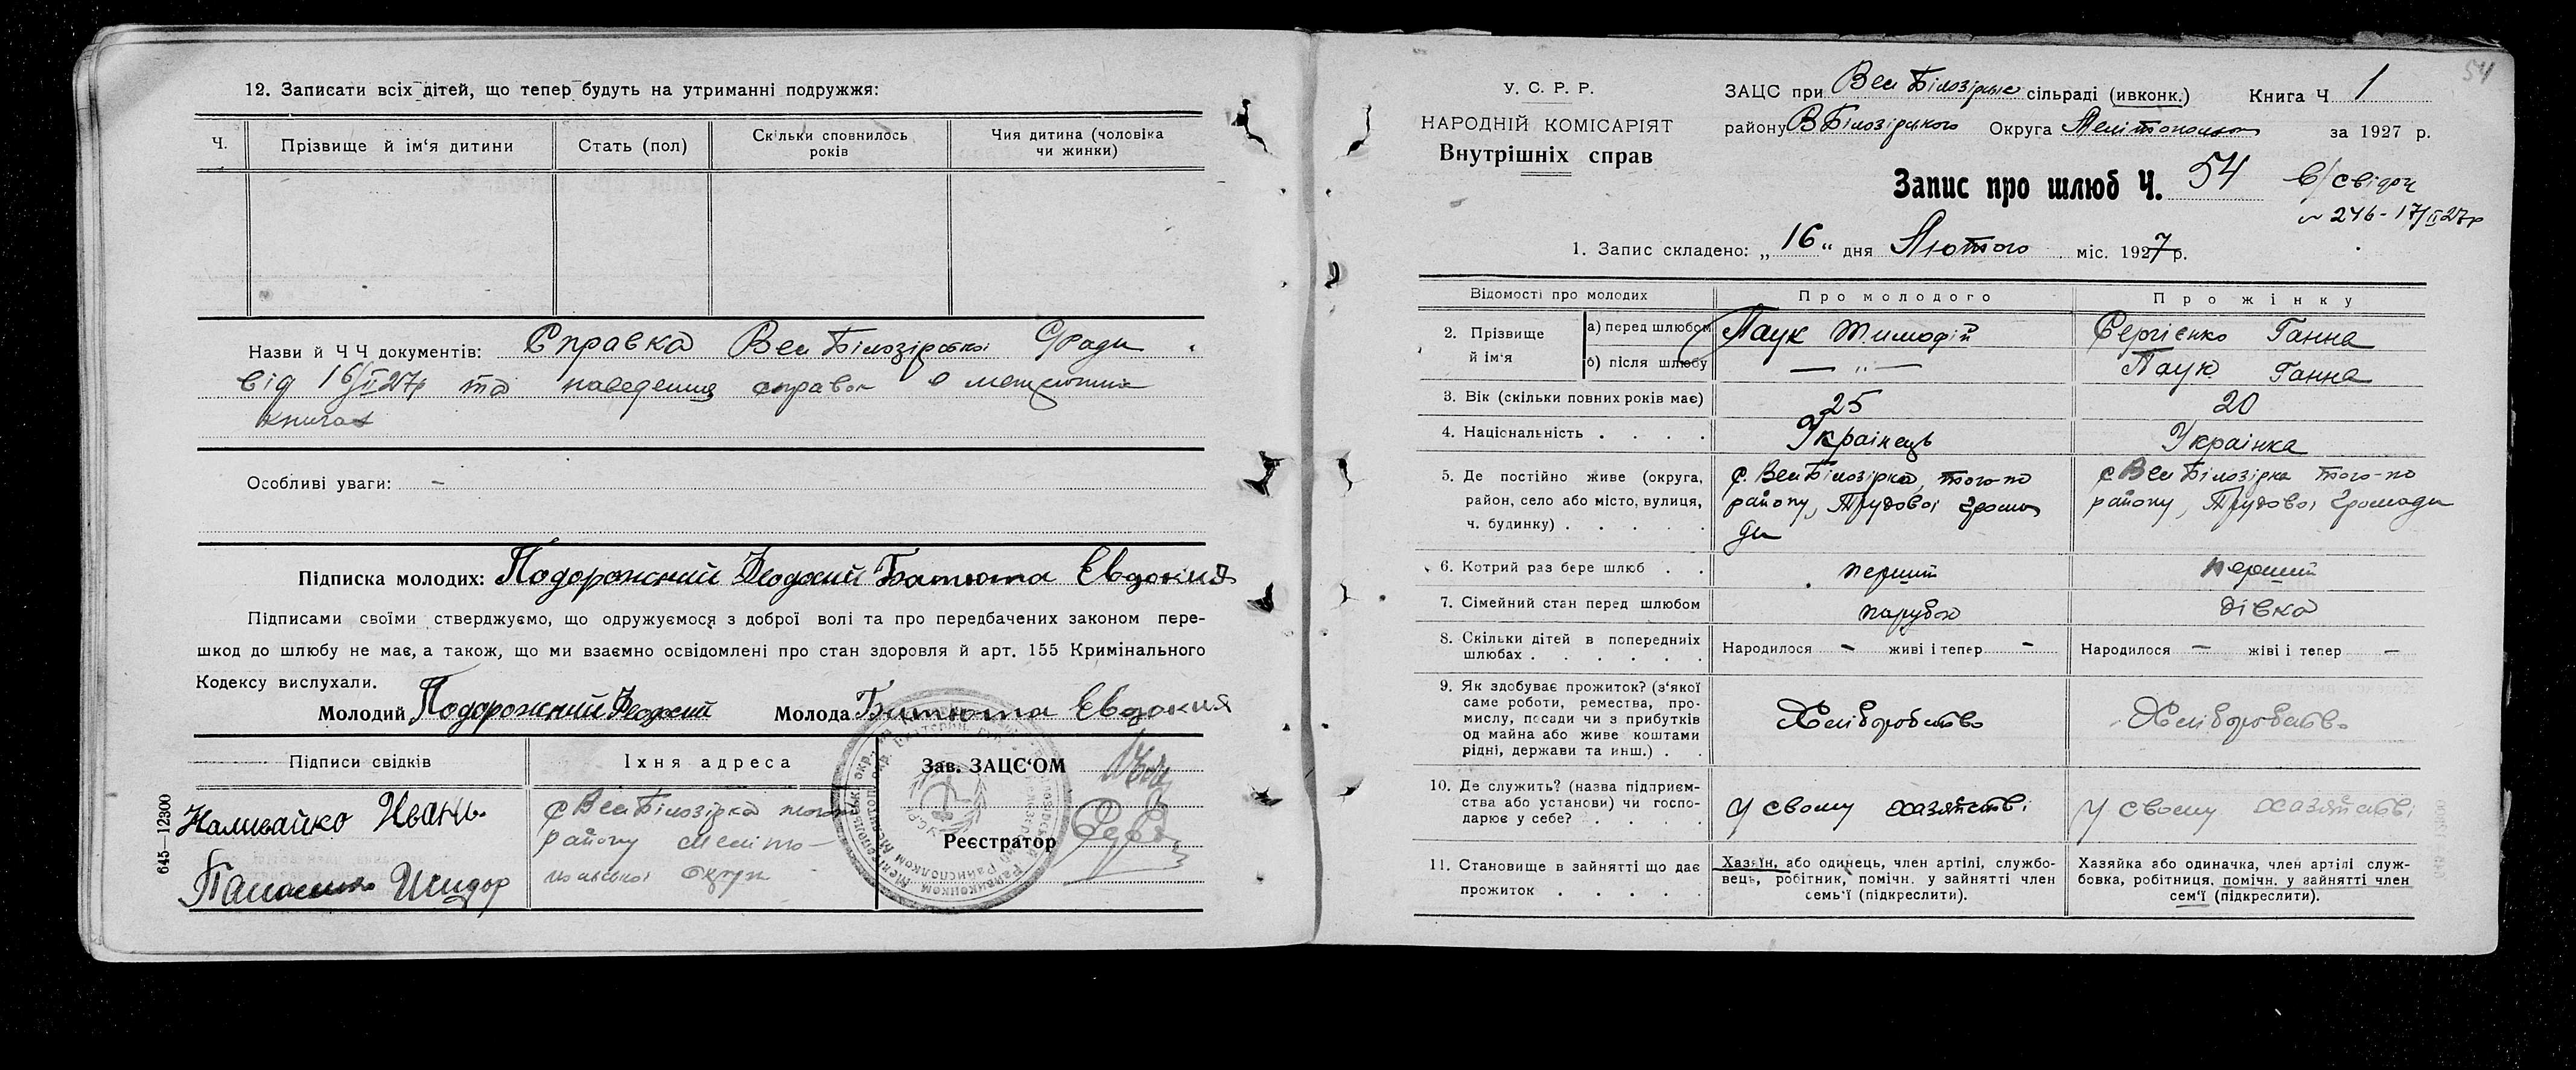 12. Записати всіх дітей, що тепер будуть на утриманні подружжя:
Ч. Прізвище й ім'я дитини Стать (пол) Скільки сповнилось років Чия дитина (чоловіка чи жинки)
Назви й Ч Ч документів: Справка Вел Білозірської С/Ради
від 16/II 27р та наведення справок в метричних
книгах
Особливі уваги: –
Підписка молодих: Подорожний Феодосий Батюта Евдокия
Підписами своїми стверджуємо, що одружуємося з доброї волі та про передбачених законом пере-
шкод до шлюбу не має, а також, що ми взаємно освідомлені про стан здоровля й арт. 155 Кримінального
Кодексу вислухали.
Молодий Подорожний Феодосий Молода Батюта Евдокия
Підписи свідків Їхня адреса Зав. ЗАЦС'ОМ
Наливайко Иванъ
с Вел Білозірка того
району Меліто-
польської Округи
Реєстратор
Исидор
645—12300
54
У. С. Р. Р.
НАРОДНІЙ КОМІСАРІЯТ
Внутрішніх справ
ЗАЦС при Вел Білозірське сільраді (ивконк.) Книга Ч 1
району В Білозірського Округа Мелітопольск за 1927 р.
Запис про шлюб Ч. 54
в/свідоч
№ 246 - 17/II 27р
1. Запис складено: „16" дня Лютого міс. 1927 р.
Відомості про молодих Про молодого Про жінку
2. Прізвище й ім'я а) перед шлюбом Паук Тимофій Сергієнко Ганна
б) після шлюбу — „ — Паук Ганна
3. Вік (скільки повних років має) 25 20
4. Національність Українець Українка
5. Де постійно живе (округа, район, село або місто, вулиця, ч. будинку)
с. Вел Білозірка, того-по
району, Трудової грома
ди
с Вел Білозірка того-по
району, Трудової Громади
6. Котрий раз бере шлюб перший перший
7. Сімейний стан перед шлюбом парубок дівка
8. Скільки дітей в попередніх шлюбах Народилося – живі і тепер – Народилося – жіві і тепер –
9. Як здобуває прожиток? (з'якої
саме роботи, ремества, про-
мислу, посади чи з прибутків
од майна або живе коштами
рідні, держави та инш.)
Хліборобство Хліборобство
10. Де служить? (назва підприєм-
ства або установи) чи госпо-
дарює у себе?
У свому хазяйстві У свому хазяйстві
11. Становище в зайнятті що дає
прожиток
Хазяїн, або одинець, член артілі, службо-
вець, робітник, помічн. у зайнятті член
семь'ї (підкреслити).
Хазяйка або одиначка, член артілі служ-
бовка, робітниця, помічн. у зайнятті член
сем'ї (підкреслити).